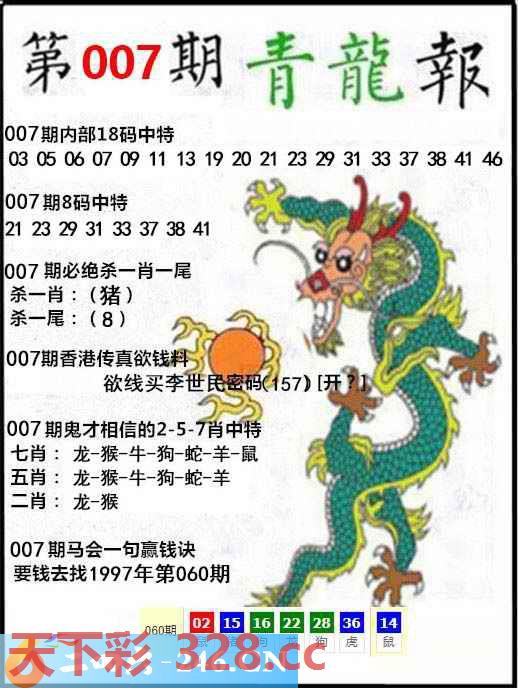 第007期青龍報
007期内部18码中特
03 05 06 07 09 11 13 19 20 21 23 29 31 33 37 38 41 46
007期8码中特
21 23 29 31 33 37 38 41
007期必绝杀一肖一尾
杀一肖：（猪）
杀一尾：（8）
007期香港传真欲钱料
欲线买李世民密码(157)[开？]
007期鬼才相信的2-5-7肖中特
七肖：龙-猴-牛-狗-蛇-羊-鼠
五肖：龙-猴-牛-狗-蛇-羊
二肖：龙-猴
007期马会一句赢钱诀
要钱去找1997年第060期
060期 02 15 16 22 28 36 14
鼠 狗 龙 狗 虎 鼠
天下彩-328.cc